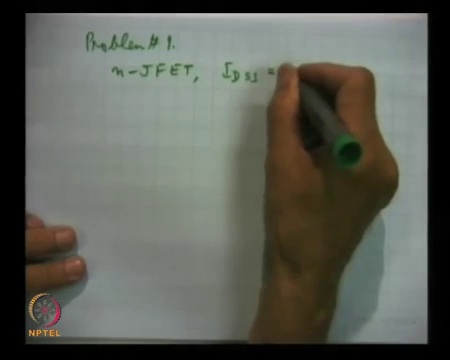 Problem # 1.
n-JFET, IDSS =
NPTEL